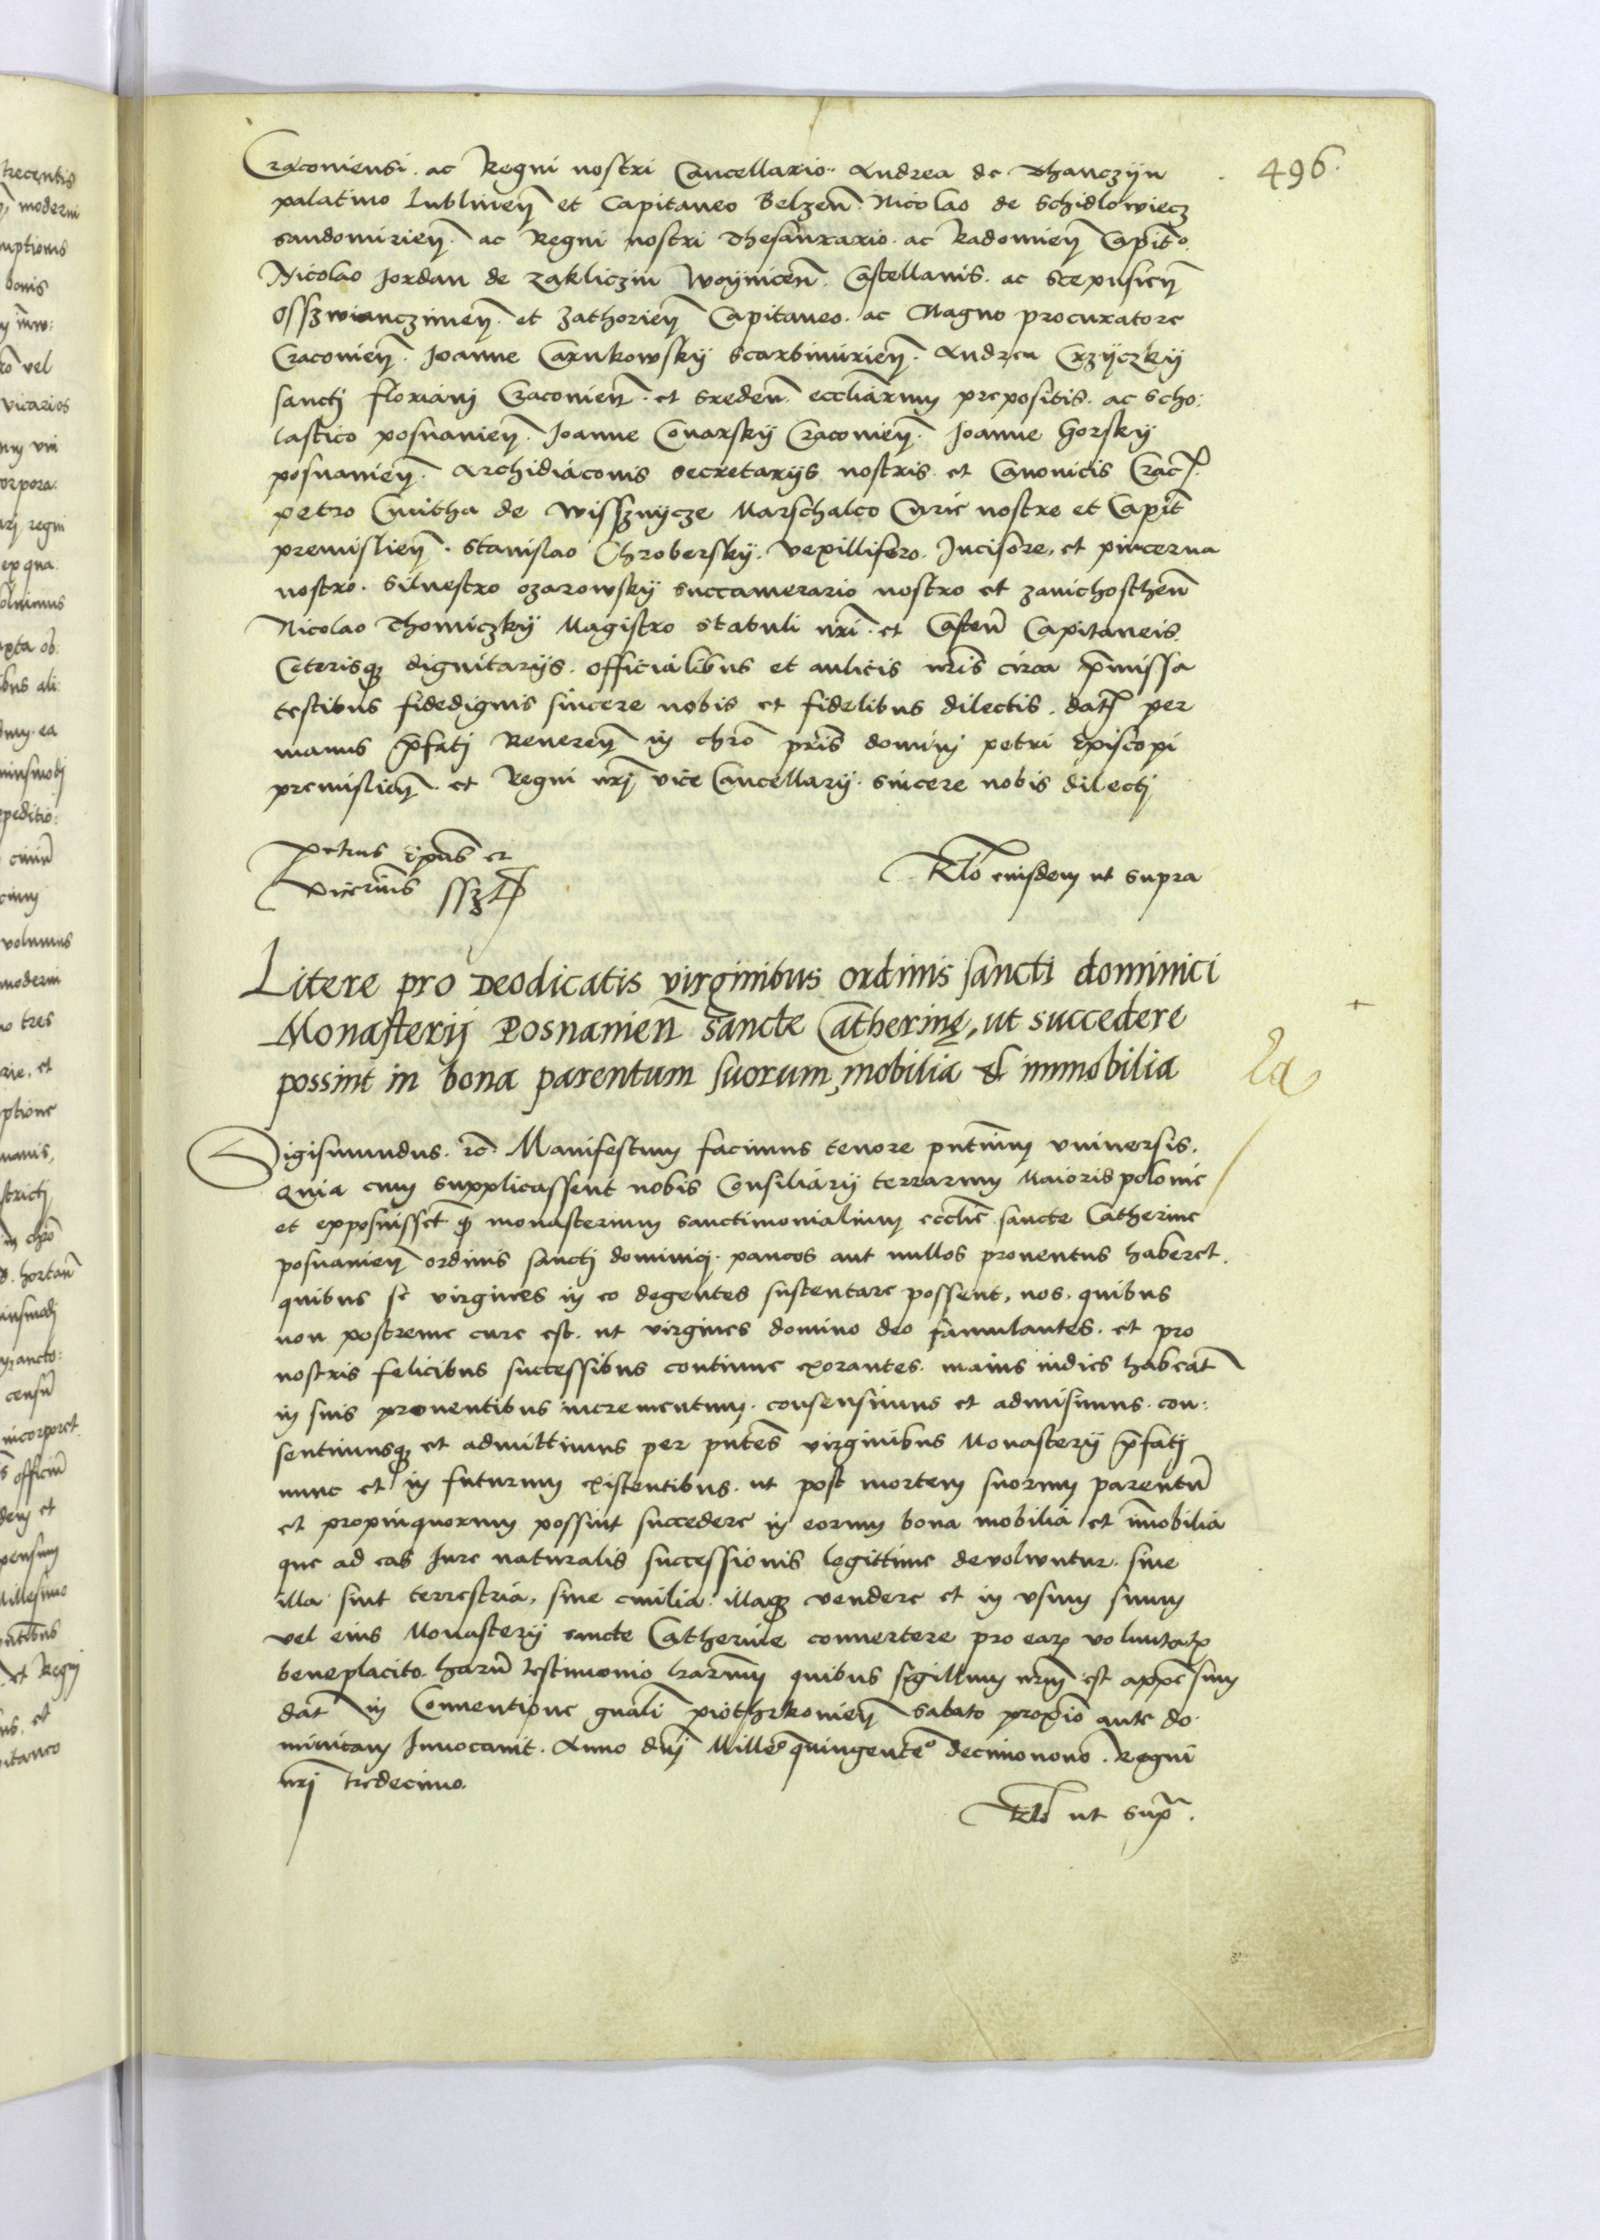 496.
Craconiensi. ac Regni nostri Cancellario. Andrea de Thanczÿn
palatino Lublineñ et Capitaneo Belzeñ. Nicolao de Schidlowiecz
sandomirieñ. ac Regni nostri Thesaurario. ac Radomieñ Capit°.
Nicolao Jordan de zakliczin Woÿniceñ. Castellanis. ac scepusieñ
Osszwianczimeñ. et zathorieñ Capitaneo. ac Magno procuratore
Cracovieñ. Joanne Carnkowskÿ scarbimirieñ. Andrea Crzÿczkÿ
sancti floriani Cracovieñ. et sredeñ. eccliarum prepositis. ac scho:
lastico posnanieñ. Joanne Conarskÿ Cracovieñ. Joanne Gorskÿ
posnanieñ. Archidiaconis secretarijs nostris. et Canonicis Crac.
petro Cmitha de Wissznycze Marschalco Curie nostre et Capit
premislieñ. Stanislao Chroberskÿ. vexillifero. Incisore, et pincerna
nostro. Siluestro ozarowskÿ succamerario nostro et zawichostheñ
Nicolao Thomiczkÿ Magistro stabuli nri. et Costeñ Capitaneis.
Ceterisq dignitarijs. officialibus et aulicis nris circa pmissa
testibus fidedignis sincere nobis et fidelibus dilectis. dat per
manus pfati Reueren in chro pris domini petri Episcopi
premislieñ. et Regni nri vice Cancellarij. sincere nobis dilecti
petrus epus et
vicecrius sszt
Rlo eiusdem ut supra
Litere pro Deodicatis virginibus ordinis sancti dominici
Monasterij Posnanieñ sancte Catherinę, ut succedere
possint in bona parentum suorum, mobilia & immobilia
Sigismundus. rc̄. Manifestum facimus tenore pntium vniuersis.
Quia cum supplicassent nobis Consiliarij terrarum Maioris polonie
et exposuisset q monasterium sanctimonialium ecclie sancte Catherine
posnanieñ ordinis sancti dominici. paucos aut nullos prouentus haberet.
quibus se virgines in eo degentes sustentare possent, nos. quibus
non postreme cure est. ut virgines domino deo famulantes. et pro
nostris felicibus successibus continue exorantes. maius indies habeat
in suis prouentibus incrementum. consensimus et admisimus. con:
sentimusq et admittimus per pntes virginibus Monasterij pfati
nunc et in futurum existentibus. ut post mortem suorum parentu
et propinquorum possint succedere in eorum bona mobilia et imobilia
que ad eas Iure naturalis successionis legittime devolwntur. siue
illa sint terrestria, siue ciuilia. illaq vendere et in vsum suum
vel eius Monasterij sancte Catherine conuertere pro ear voluntat
beneplacito. haru testimonio lrarum quibus sigillum nrum est appesum
dat in Conuentione gnali piothrkovieñ sabato proxio ante do
minicam Inuocauit. Anno dni Milles° quingentes° decimonono. Regni
nri tredecimo.
Rlo ut sup.